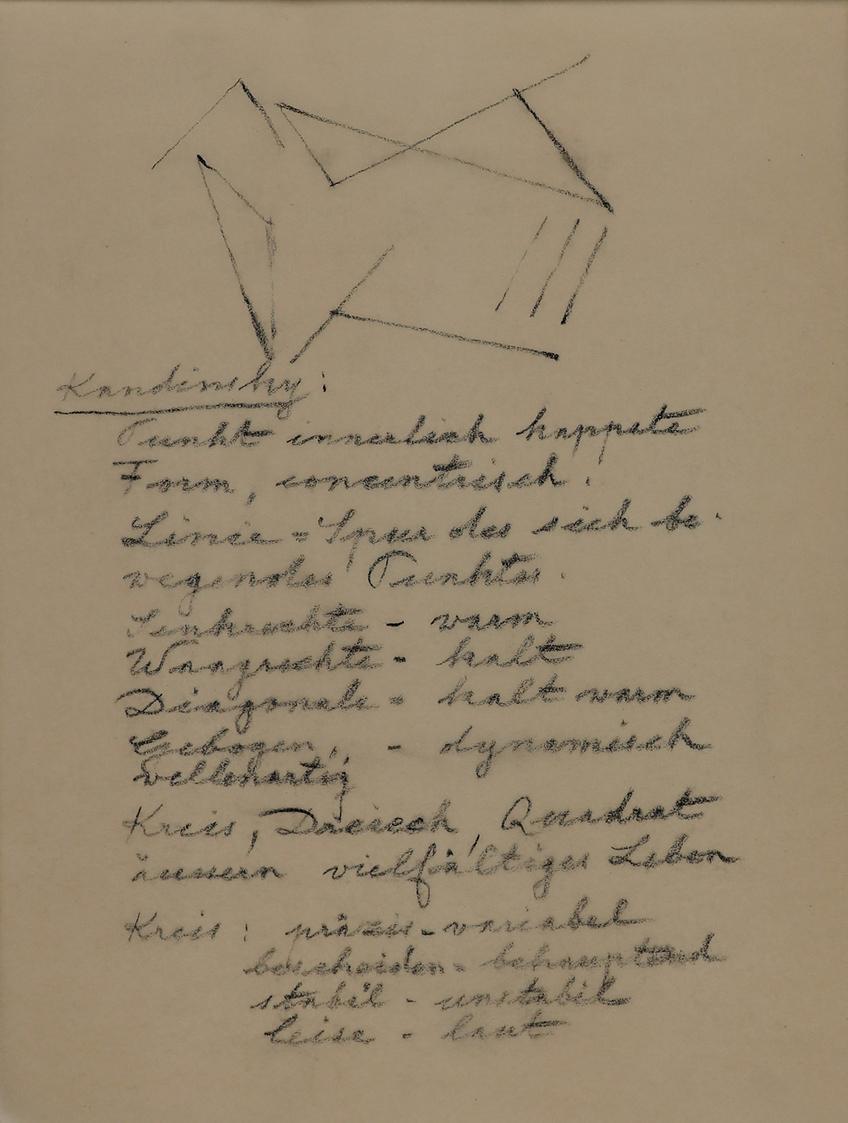 Kandinsky:
Punkt innerlich knappste
Form, concentrisch.
Linie = Spur des sich be-
wegendes Punktes.
Senkrechte - warm
Waagrechte - kalt
Diagonale = kalt warm
Gebogen, - dynamisch
wellenartig
Kreis, Dreieck, Quadrat
äussern vielfältiges Leben
Kreis: präzis - variabel
bescheiden - behauptend
stabil - unstabil
leise - laut